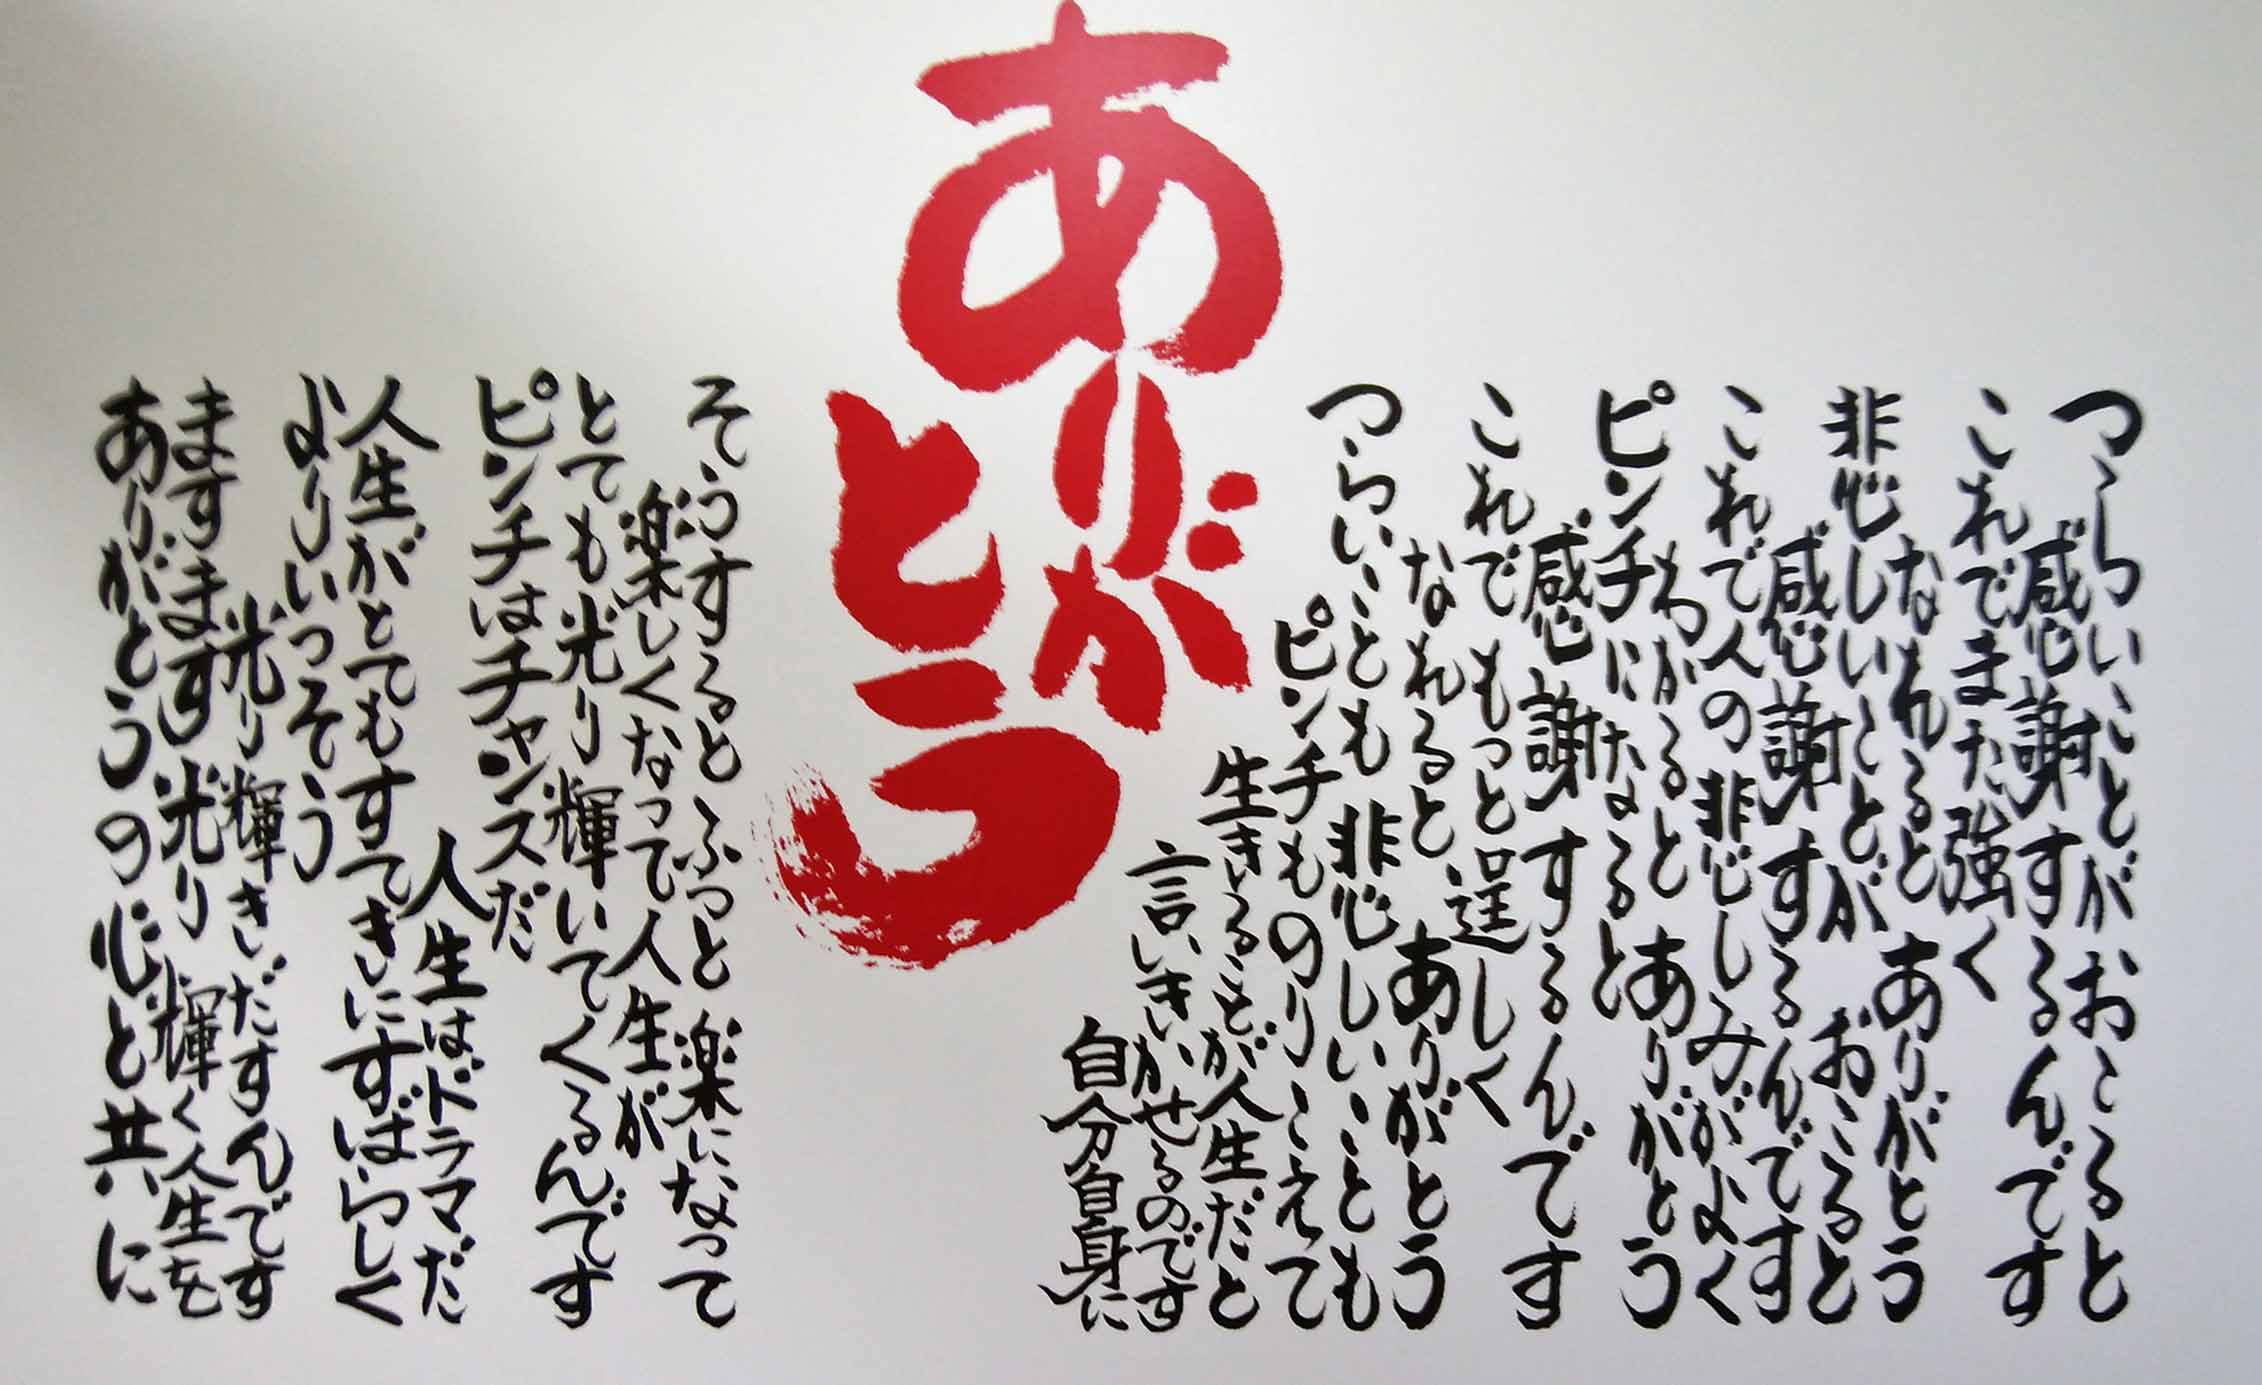 つらいことがおこると
感謝するんです
これでまた強く
なれると ありがとう
悲しいことが おこると
感謝するんです
これで人の悲しみがよく
わかると ありがとう
ピンチになると
感謝するんです
これで もっと逞しく
なれると、ありがとう
つらいことも悲しいことも
ピンチものりこえて
生きることが人生だと
言いきかせるのです
自分自身に
ありがとう
そうすると ふっと楽になって
楽しくなって人生が
とても光り輝いてくるんです
ピンチはチャンスだ
人生はドラマだ
人生がとてもすてきにすばらしく
よりいっそう
光り輝きだすんです
ますます光り輝く人生を
ありがとうの心と共に